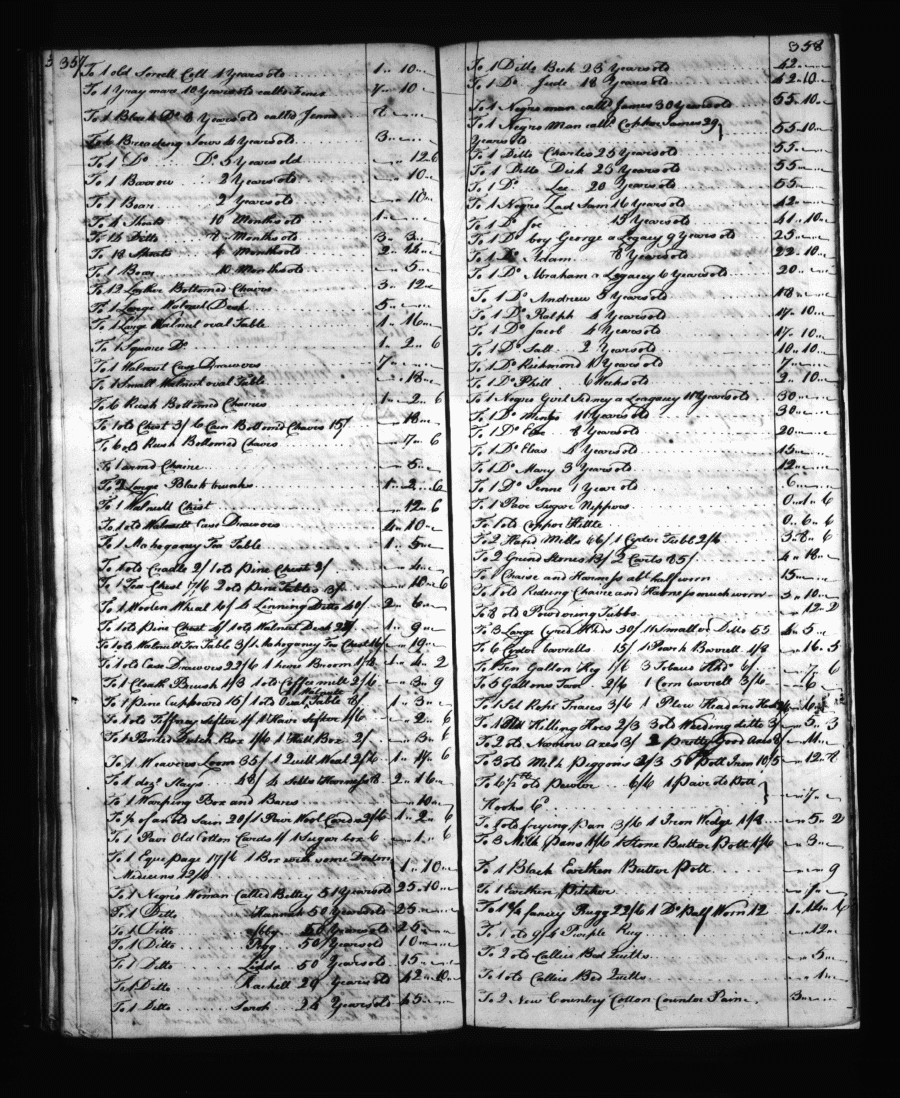 357
To 1 old Sorrell Colt 4 Years old 1 10
To 1 Gray mare 10 Years old called 10
To 1 Black Do 8 Years old called Jenny 8
To 6 Breeding Sows 4 Years old 3
To 1 Do Do 5 Years old 12 6
To 1 Barrow 2 Years old 10
To 1 Boar 2 Years old 10
To 4 Shoats 10 Months old 1
To 12 Ditto 8 Months old 3 3
To 18 Shoats 4 Months old 2 14
To 1 Boar 10 Months old 5
To 12 Leather Bottomed Chares 3 12
To 1 Large Walnut Desk 5
To 1 Large Walnut oval Table 1 16
To 1 Square Do 1 2 6
To 1 Walnut Case Drawers 7
To 1 Small Walnut oval Table 18
To 6 Rush Bottomed Chares 1 2 6
To 1 old Chest 3/6 Cain Bottomed Chares 15/ 18
To 6 old Rush Bottomed Chares 17 6
To 1 armed Chaire 5
To 2 Large Black trunks 1 2 6
To 1 Wallnutt Chest 12 6
To 1 old Wallnutt Case Drawers 4 10
To 1 Mahogony Tea Table 1 5
To 1 old Cradle 2/ 1 old Pine Chest 2/ 4
To 1 Tea Chest 7/6 2 old Pine Tables 3/ 10 6
To 1 Woolen Wheal 6/ 4 Linning Ditto 40/ 2 6
To 1 old pine Chest 4/ 1 old Walnut Desk 25/ 1 9
To 1 old Wallnutt Tea Table 3/ 1 Mahogony Tea Chest 16/ 19
To 1 old Case Drawers 22/6 1 Broom 1/8 1 4 2
To 1 Cloath Brush 1/3 1 old Coffee mill 2/6 3 9
To 1 Pine Cupboard 15/ 1 old Walnutt Oval Table 8/ 1 3
To 1 old Sifter 1/ 1 Hare Sifter 1/6 2 6
To 1 Painted Dutch Box 1/6 1 Box 2/ 3 6
To 1 Weavers Loom 35/ 1 Quill Wheal 2/6 1 17 6
To 1 dozn Slays 48/ 4 Setts Harness 8 2 16
To 1 Warping Box and Bars 10
To ½ of an old Sain 20/ 1 Pair Wool Cards 2/6 1 2 6
To 1 Pair Old Cotton Cards 1/ 1 Sugar box 6 1 6
To 1 Equipage 17/6 1 Box with some Doctors
Medicins 12/6 1 10
To 1 Negro Woman Called Bettey 51 Years old 25 10
To 1 Ditto Hannah 50 Years old 25
To 1 Ditto Abby 50 Years old 25
To 1 Ditto Pegg 50 Years old 10
To 1 Ditto Lidda 50 Years old 15
To 1 Ditto Rachell 29 Years old 42 10
To 1 Ditto Sarah 24 Years old 45
358
To 1 Ditto Beck 23 Years old 42
To 1 Do Jude 18 Years old 42 10
To 1 Negro man calld James 30 Years old 55 10
To 1 Negro Man calld Copper James 29
Years old 55 10
To 1 Ditto Charles 25 Years old 55
To 1 Ditto Dick 25 Years old 55
To 1 Do Lee 20 Years old 55
To 1 Negro Lad Sam 16 Years old 42
To 1 Do Joe 15 Years old 41 10
To 1 Do boy George a Legacy 9 Years old 25
To 1 Do Adam 8 Years old 22 10
To 1 Do Abraham a Legacy 6 Years old 20
To 1 Do Andrew 5 Years old 18
To 1 Do Ralph 4 Years old 17 10
To 1 Do Jacob 4 Years old 17 10
To 1 Do Salt 2 Years old 10 10
To 1 Do Richmond Years old 7
To 1 Do Phill 6 Weeks old 2 10
To 1 Negro Girl Sidney a Longacy 11 Years old 30
To 1 Do 11 Years old 30
To 1 Do 8 Years old 20
To 1 Do 4 Years old 15
To 1 Do Mary 3 Years old 12
To 1 Do Jenne 1 Year old 6
To 1 Pare Sugar Nippers 0 1 6
To 1 old Coppor Kittle 0 6 6
To 2 Hand Mills 66/ 1 Cyder Tubb 2/6 3 8 6
To 2 Grind Stones 13/ 2 Carts 85/ 4 18
To 1 Chaise and Harness abt half worn 15
To 1 old Riding Chaire and Harness much worn 3 10
To 8 old Powdering Tubbs 12 2
To 3 Large Cyred Hhds 30/ 11 Small or Ditto 55 4 5
To 6 Cyder barrells 15/ 1 Barrell 1/8 16 5
To 1 Ten Gallon Keg 1/6 3 Tobacco Hhds 6/ 7 6
To 5 Gallons Tarr 2/6 1 Corn barrell 3/6 6
To 1 Set Rope Traces 3/6 1 Plow Head and
To 1 old Hilling Hoes 2/3 3 old Weeding ditto 3/ 5 3
To 2 old Narrow Axes 3/ 2 Pretty Good Axes 8/ 11
To 3 old Milk Piggons 2/3 50 lb Pott Iron 10/5 12 8
To 6½ lb old Pewter 6/6 1 Pair old Pott
Hooks 6d 7
To old frying pan 3/6 1 Iron Wedge 1/8 5 2
To 3 Milk Pans 1/6 1 Stone Butter Pott 1/6 3
To 1 Black Earthen Butter Pott 9
To 1 Earthen Pitcher
To 1 fancey Rugg 22/6 1 Do Half Worn 12 1 14 6
To 1 old 9/4 Purple Rug 12
To 2 old Callico Bed Quilts 5
To 1 old Callico Bed Quilts 1
To 2 New Country Cotton Counter Pains 3